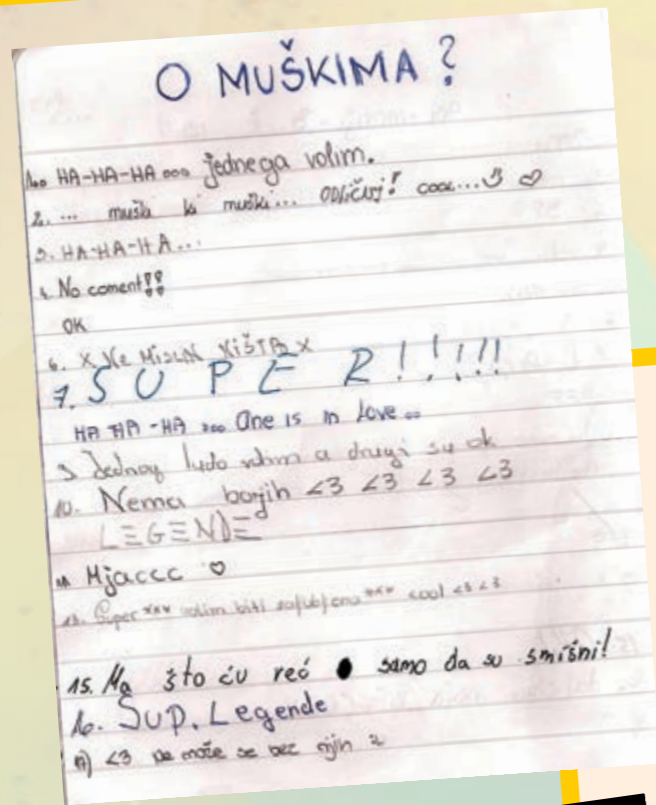 O MUŠKIMA?
1. HA-HA-HA ... jednega volim.
2. ... muški ki muški... ODLIČNJ! cool... ♡
3. HA-HA-HA...
4. No coment!!
OK
6. X Ne MISLIN NIŠTA X
7. S U P E R!!!!!
HA HA-HA ... One is in Love ..
9 Jednog ludo volim a drugi su ok
10. Nema boljih <3 <3 <3 <3
LEGENDE
Mjaccc ♡
13. Super *** volim biti zaljubljena *** cool <3 <3
15. Ma što ću reć samo da su smišni!
16. Sup. Legende
17) <3 ne može se bez njih